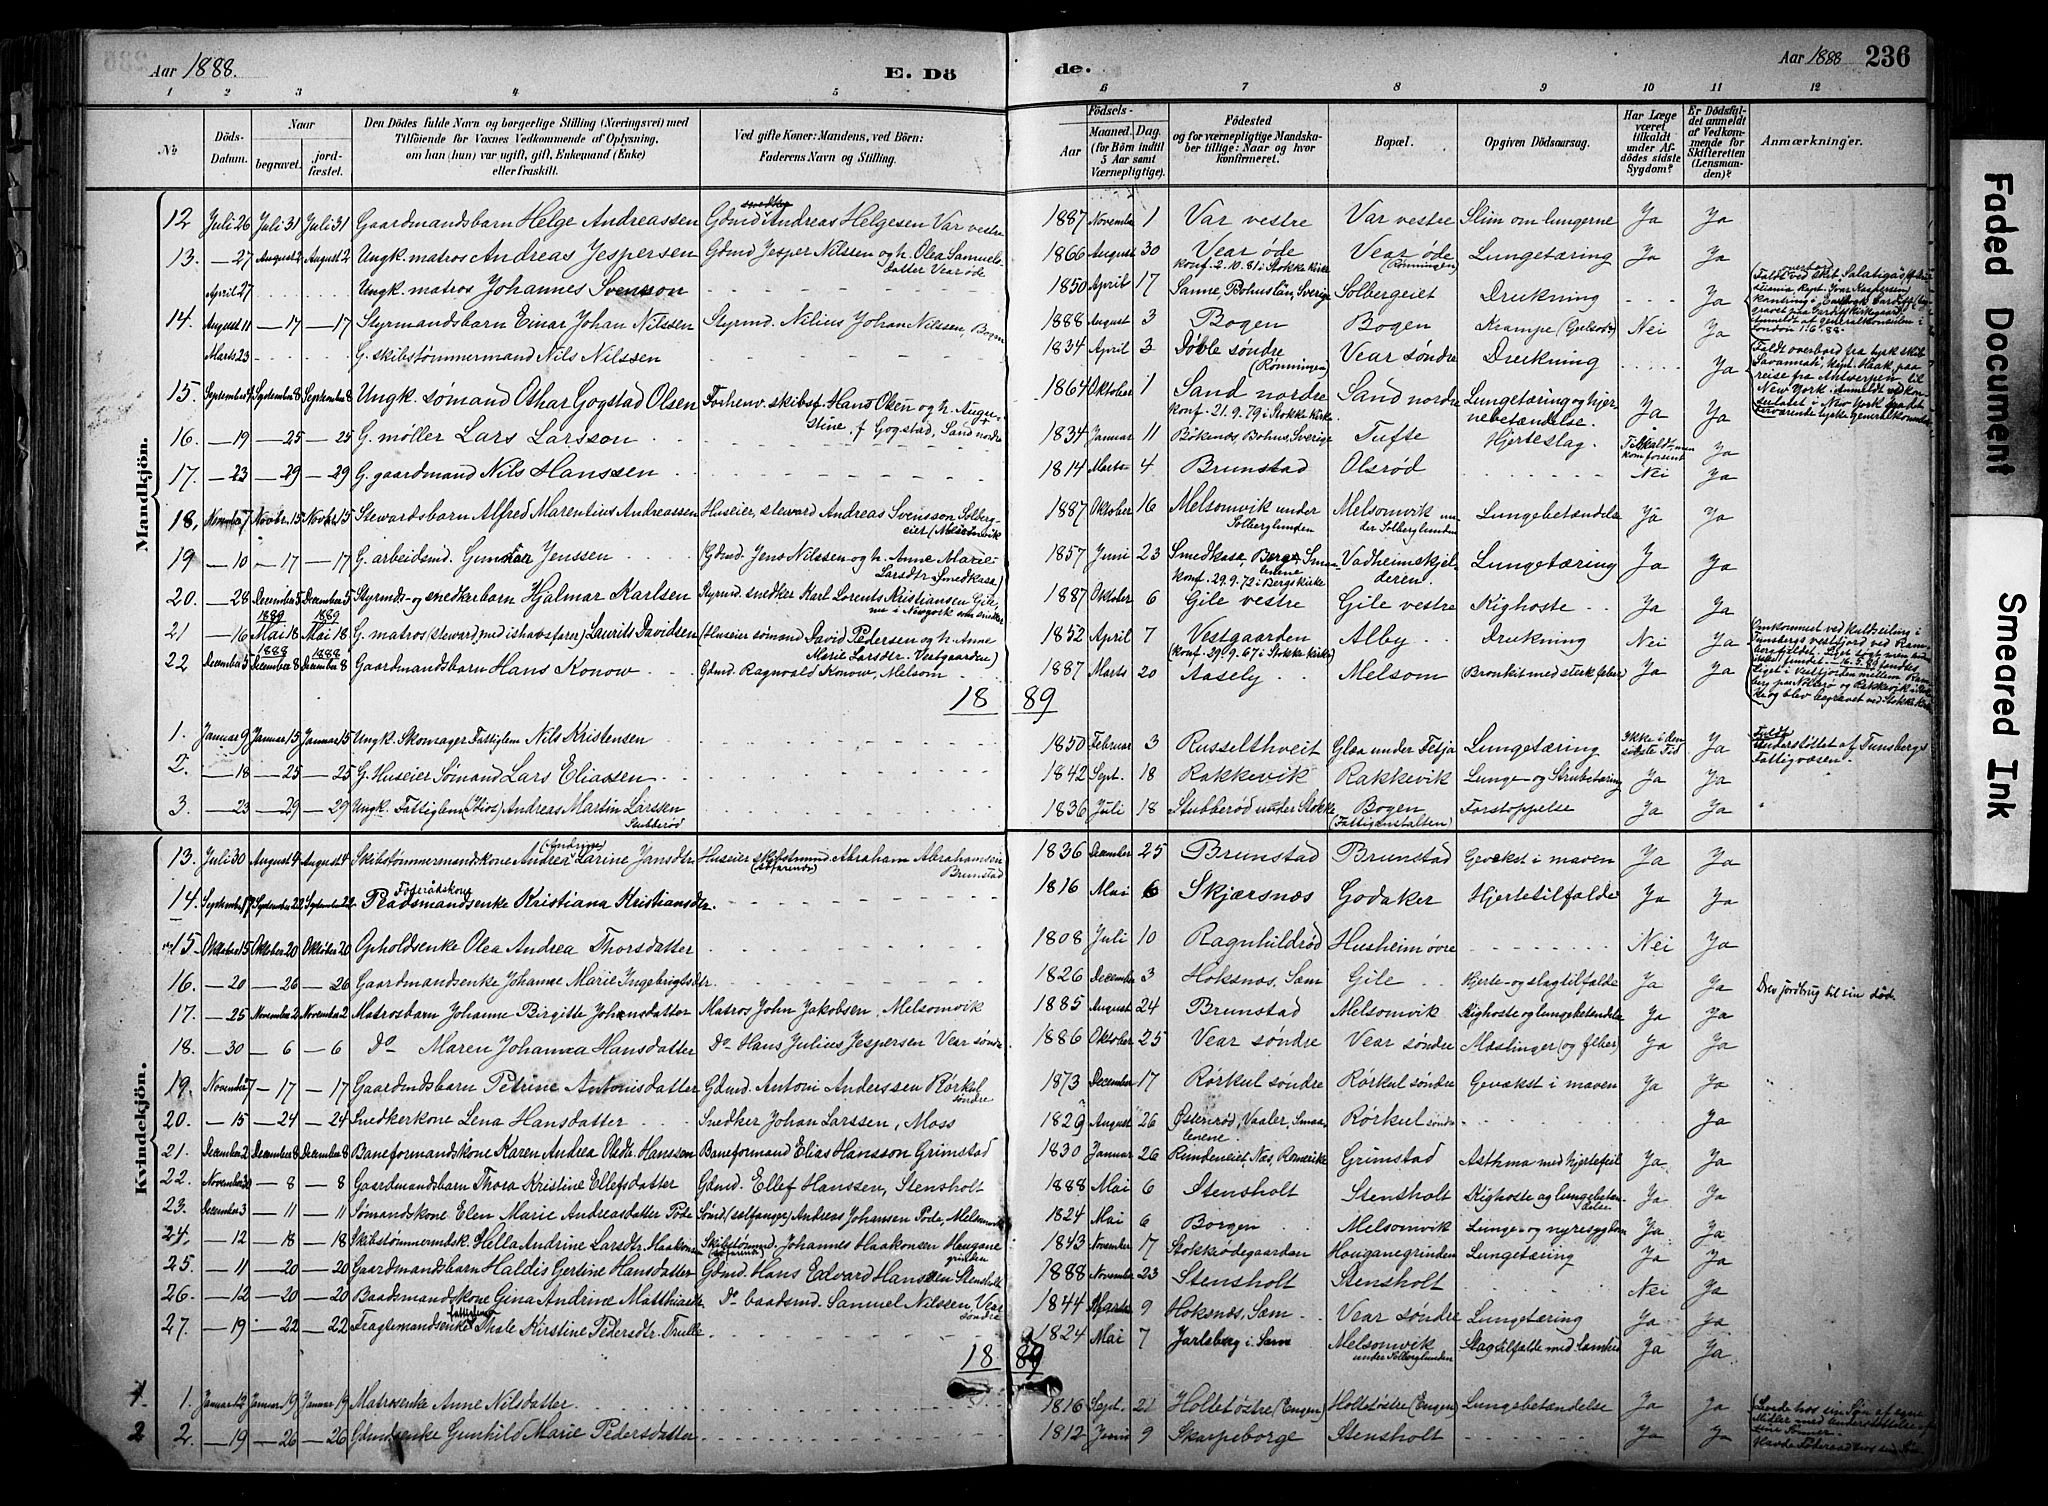 Aar 1888.
E. Dö
de.
Aar 1888
236
1 2 3 4 5 6 7 8 9 10 11 12
No
Döds-Datum.
Naar
begravet.
jordfæstet.
Den Dödes fulde Navn og borgerlige Stilling (Næringsvei) med
Tilföiende for Voxnes Vedkommende af Oplysning,
om han (hun) var ugift, gift, Enkemand (Enke)
eller fraskilt.
Ved gifte Koner: Mandens, ved Börn:
Faderens Navn og Stilling.
Födsels-
Aar
Maaned. Dag.
(for Börn indtil
5 Aar samt
Værnepligtige).
Födested
og for værnepligtige Mandskaber tillige: Naar og hvor
konfirmeret.
Bopæl.
Opgiven Dödsaarsag.
Har Læge
været
tilkaldt
under Afdödes sidste
Sygdom?
Er Dödsfaldet anmeldt
af Vedkommende for
Skifteretten
(Lensmanden)?
Anmærkninger.
Mandkjön.
12 Juli 26 Juli 31 Juli 31 Gaardmandsbarn Helge Andreassen Gdmd Andreas Helgesen Var vestre 1887 November 1 Var vestre Var vestre Slim om lungerne Ja Ja
13. — 27 August 2 August 2 Ungk. matros Andreas Jespersen Gdmd Jesper Nilssen og h. Olea Samuelsdatter Vear øde 1866 August 30 Vear øde konf. 2.10.81 i Stokke kirke Vear øde (Rønningen) Lungetæring Ja Ja
April 27 Ungk. matros Johannes Svensson 1850 April 17 Sanne, Bohuslän, Sverige Solbergeiet Drukning Ja
14. August 11 — 17 — 17 Styrmandsbarn Einar Johan Nilssen Styrmd. Nilius Johan Nilssen, Bogen 1888 August 3 Bogen Bogen Krampe Nei Ja
Marts 23 G. skibstømmermand Nils Nilssen 1834 April 2 Døble søndre (Rønningen) Vear søndre Drukning Ja
Faldt overbord fra tysk skib
Savannah, kapt. Haak, paa
reise fra Antwerpen til
New York. Anmeldt ved
15. September 4 September 8 September 8 Ungk. sømand Othar Gogstad Olsen Forhenv. skibsf. Hans Olsen og h. Augustine f. Gogstad, Sand nordre 1864 Oktober 1 Sand nordre konf. 21.9.79 i Stokke kirke Sand nordre Lungetæring og hjernebetændelse. Ja Ja
16. — 19 — 25 — 25 G. møller Lars Larsson 1834 Januar 11 Bökenäs, Bohus, Sverige Tufte Hjerteslag. Tilkaldt, men kom forsent Ja
17. — 23 — 29 — 29 G. gaardmand Nils Hanssen 1814 Marts 4 Brunstad Olsrød Nei Ja
18. November 7 Novbr. 15 Novbr. 15 Stewardsbarn Alfred Marentius Andreassen Huseier, steward Andreas Svensson Solbergeier (Melsomvik 1887 Oktober 16 Melsomvik under Solberglunden Melsomvik under Solberglunden Lungebetændelse Ja Ja
19 — 10 — 17 — 17 G. arbeidsmd. Gunerar Jenssen (Gdmd. Jens Nilssen og h. Anne Marie Larsdtr Smedkasa) 1857 Juni 23 Smedkasa, Berg, Smaalenene konf. 29.9.72 i Berg kirke Vadheimskjelderen Lungetæring Ja Ja
20. — 28 December 5 December 5 Styrmds- og snedkerbarn Hjalmar Karlsen Styrmd. snedker Karl Lorents Kristiansen Gile, nu i Newyork som snedker 1887 Oktober 6 Gile vestre Gile vestre Kighoste Ja Ja
21 — 16 1889 Mai 18 1889 Mai 18 G. matros (steward, med ishavsfarer) Laurits Davidsen (Huseier sømand David Pedersen og h. Anne Marie Larsdtr. Vestgaarden) 1852 April 7 Vestgaarden (konf. 29.9.67 i Stokke kirke) Alby Drukning Nei Ja
Omkommet ved kuldseiling i
Tunsbergs vestfjord ved
22 December 5 1888 December 8 1888 December 8 Gaardmandsbarn Hans Konow Gdmd. Ragnvald Konow, Melsom 1887 Marts 20 Aasely Melsom Bronkit med sterk feber Ja Ja
18 89
1. Januar 9 Januar 15 Januar 15 Ungk. Skomager Fattiglem Nils Kristensen 1850 Februar 3 Russelthveit Glæa under Fetja Lungetæring Ikke i den sidste Tid Ja Understöttet af Tunsbergs Fattigvæsen.
2. — 18 — 25 — 25 G. Huseier Sømand Lars Eliassen 1842 Sept. 18 Rakkevik Rakkevik Lunge- og Strubetæring Ja Ja
3. — 23 — 29 — 29 Ungk. Fattiglem (Idiot) Andreas Martin Larssen Stubberød 1836 Juli 18 Stubberød under Stokke Bogen (Fattiganstalten) Forstoppelse Ja Ja
Kvindekjön.
13. Juli 30 August 4 August 4 Skibstømmermandskone Andrea (Andrine) Larine Jansdtr Huseier skibstmmd Abraham Abrahamsen Brunstad 1836 December 25 Brunstad Brunstad Gevækst i maven Ja Ja
14. September 17 September 22 September 22 Føderådskone Pladsmandsenke Kristiana Kristiansdtr. 1816 Mai 6 Skjærsnæs Godaker Hjertetilfælde Ja Ja
15. Oktober 15 Oktober 20 Oktober 20 Opholdsenke Olea Andrea Thorsdatter 1808 Juli 10 Ragnhildrød Husheim øvre Nei Ja
16. — 20 — 26 — 26 Gaardmandsenke Johanne Marie Ingebrigtsdtr. 1826 December 3 Hoksnæs, Sæm Gile Hjerte- og slagtilfælde Ja Ja Drev jordbrug til sin död.
17. — 25 November 2 November 2 Matrosbarn Johanne Birgitte Johansdatter Matros John Jakobsen, Melsomvik 1885 August 24 Brunstad Melsomvik Kighoste og lungebetændelse Ja Ja
18. — 30 — 6 — 6 Do Maren Johanna Hansdatter Do Hans Julius Jespersen Vear søndre 1886 Oktober 25 Vear søndre Vear søndre Mæslinger (og feber) Ja Ja
19. November 7 — 17 — 17 Gaardmdsbarn Petrine Antonisdatter Gdmd. Antoni Anderssen Rørkul søndre 1873 December 17 Rørkul søndre Rørkul søndre Gevækst i maven Ja Ja
20. — 15 — 24 — 24 Snedkerkone Lena Hansdatter Snedker Johan Larssen, Moss 1829 August 26 Østererød, Vaaler, Smaalenene. Rørkul søndre Ja
21. December 2 December 8 December 8 Baneformandskone Karen Andrea Olsdtr Hanssen Baneformand Elias Hansson Grimstad 1830 Januar 26 Rendeneiet, Næs, Romerike Grimstad Asthma med hjertefeil Ja Ja
22. November — 8 — 8 Gaardmandsbarn Thora Kristine Ellefsdatter Gdmd. Ellef Hanssen, Stensholt 1888 Mai 6 Stensholt Stensholt Kighoste og lungebetændelse Ja Ja
23. December 3 — 11 — 11 Sømandskone Elen Marie Andreasdatter Pode Sømd (sælfanger) Andreas Johansen Pode, Melsomvik 1824 Mai 6 Borgen Melsomvik Lunge- og nyresygdom Ja Ja
24. — 12 — 18 — 18 Skibstømmermdsk. Hella Andrine Larsdtr Haakonsen Skibstømmd. Johannes Haakonsen Hougane grinden 1843 November 7 Stokkødegaarden Houganegrinden Lungetæring Ja Ja
25. — 11 — 20 — 20 Gaardmandsbarn Haldis Gertine Hansdatter Gdmd. Hans Edvard Hanssen Stensholt 1888 November 23 Stensholt Stensholt Nei Ja
26. — 12 — 20 — 20 Baadsmandskone Gina Andrine Matthiasdtr Do baadsmd. Samuel Nilssen, Vear søndre 1844 Marts 9 Hoksnæs, Sæm Vear søndre Lungetæring Ja Ja
27. — 19 — 22 — 22 Fragtemandsenke fattiglem Thale Kirstine Pedersdtr. Trulle 1824 Mai 7 Jarlsberg i Sæm Melsomvik under Solberglunden Slagtilfælde med lamhed Ja Ja
18 89
1. 1. Januar 12 Januar 19 Januar 19 Matrosenke Anne Nilsdatter 1816 Sept. 21 Holtetøstre (Engen) Holtetøstre (Engen) Lungebetændelse Ja Ja
2 2. — 19 — 26 — 26 Gdmdsenke Gunhild Marie Pedersdatter 1812 Juni 9 Skarpeborge Stensholt Ja Ja
Faded Document
Smeared Ink